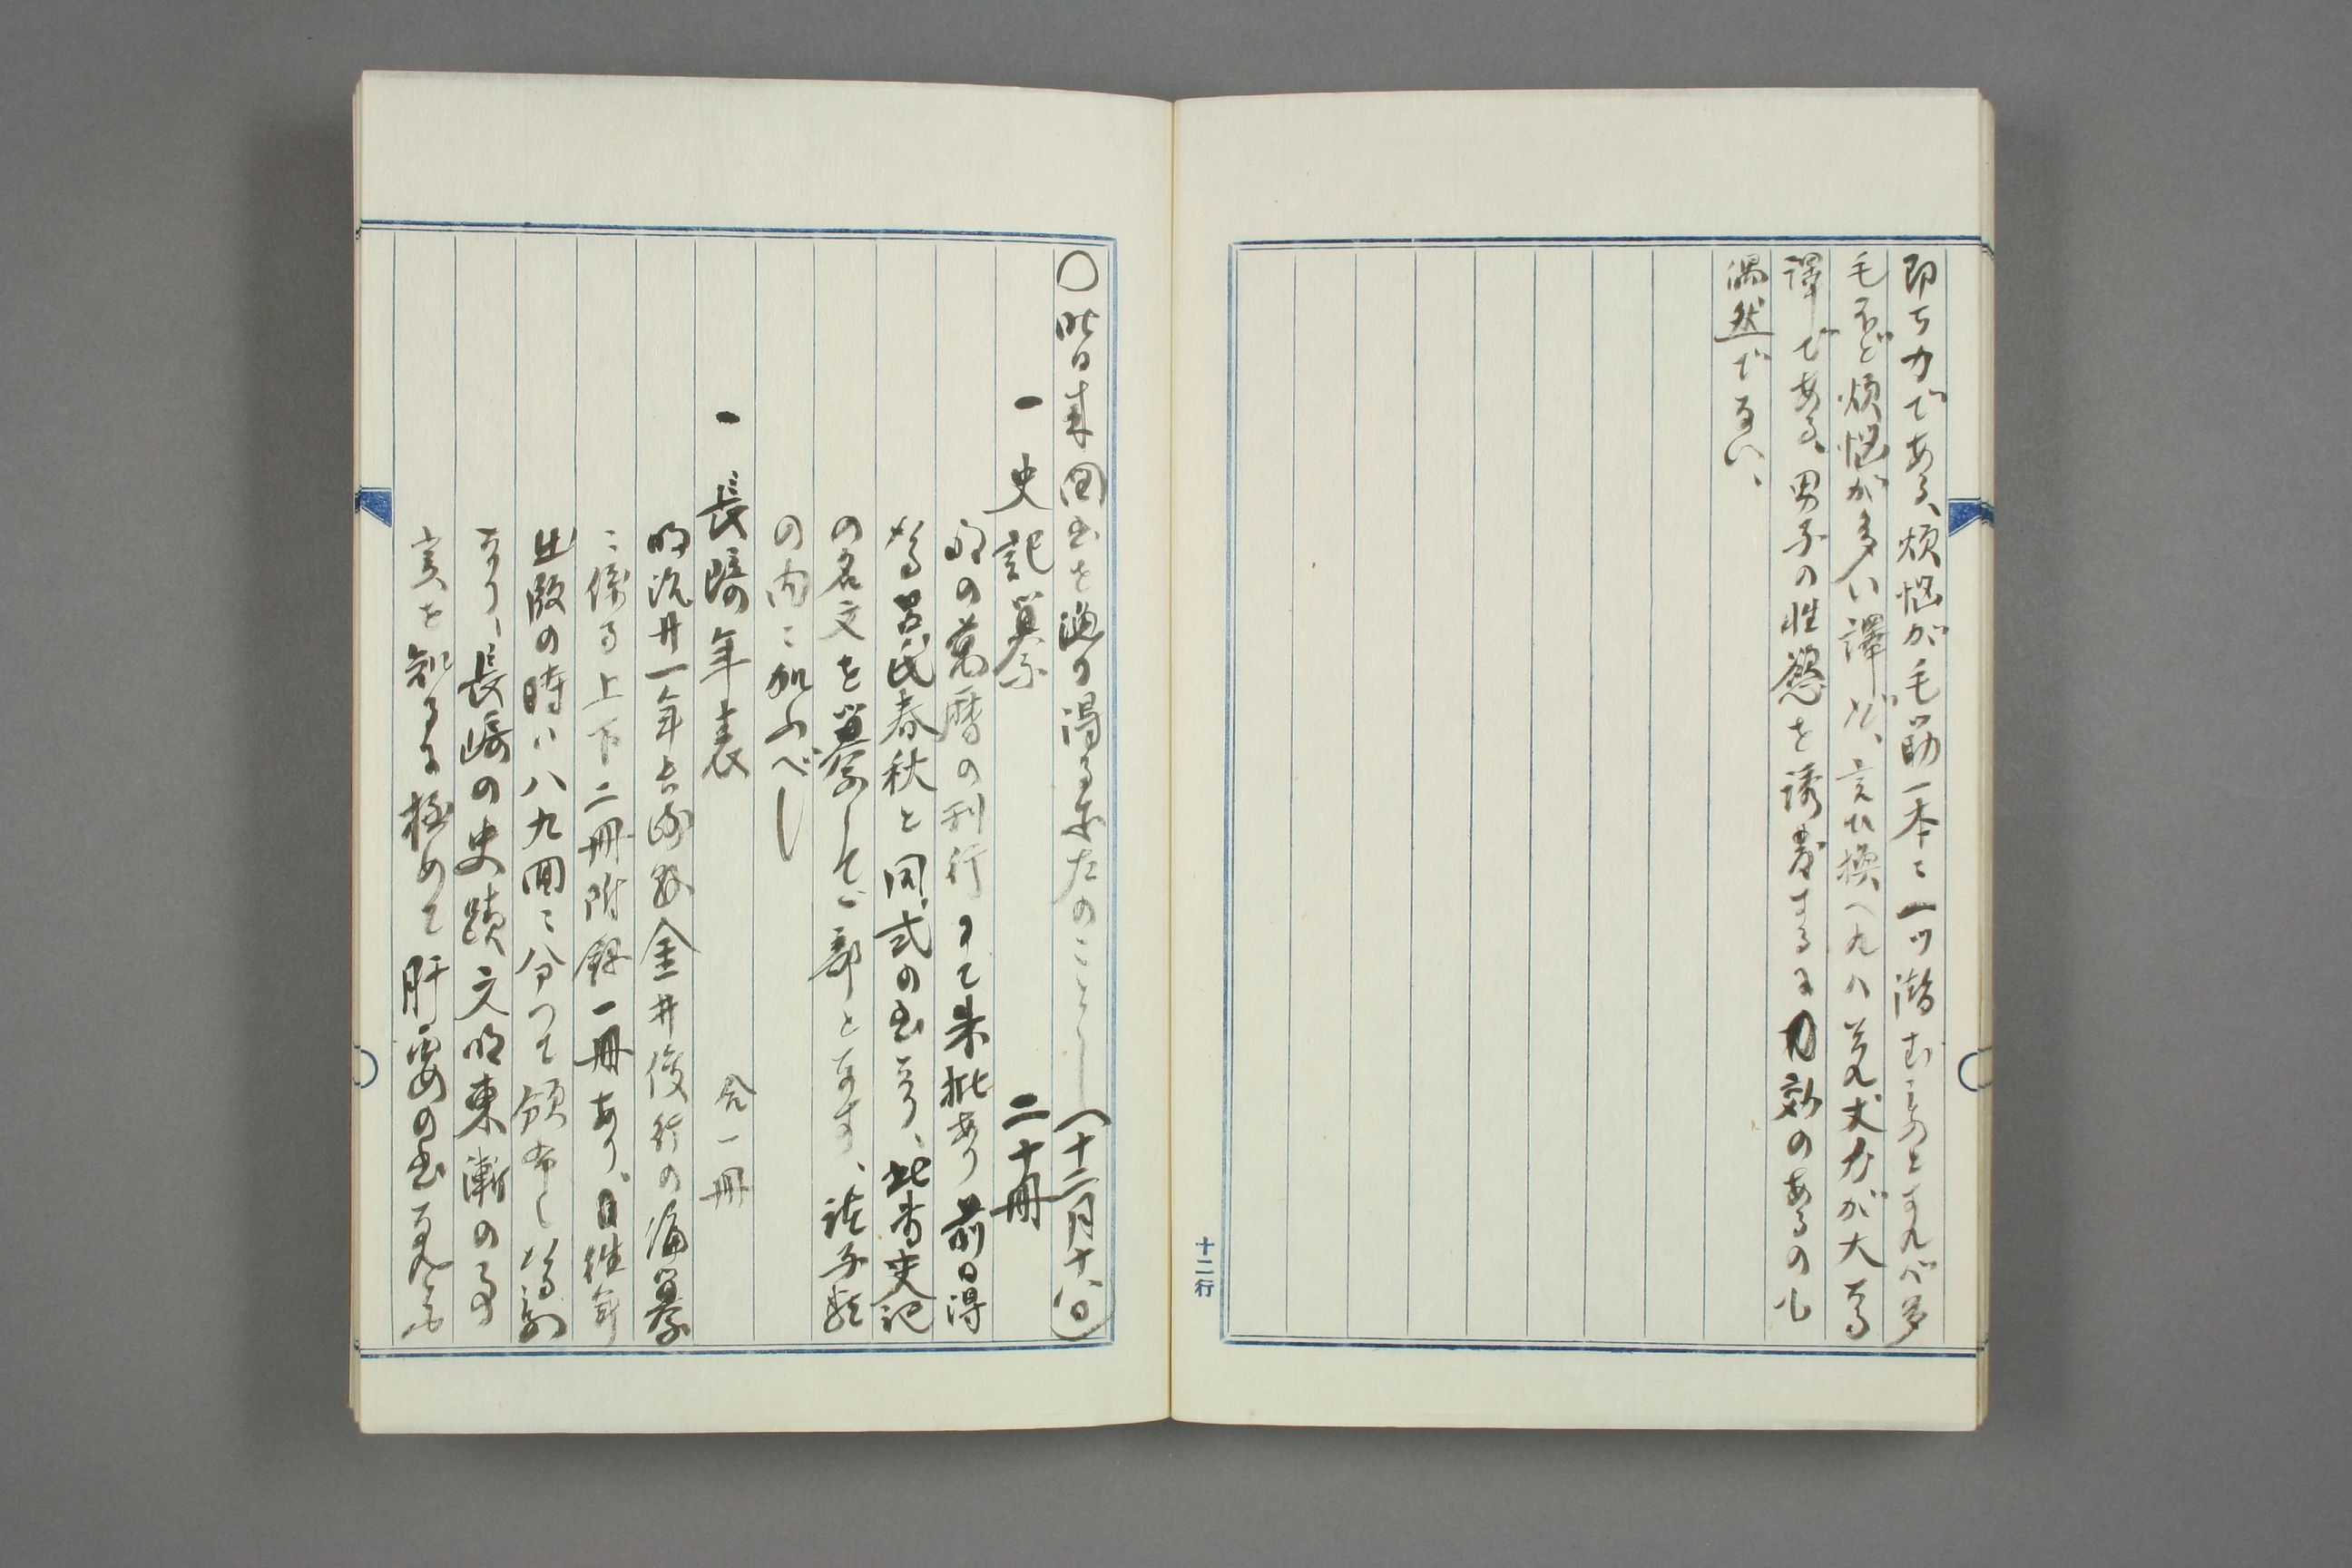 即ち力である、煩悩が毛筋一本に一ツ潜むものとすれバ多
毛ほど煩悩が多い譯だ、言ひ換へれハ丈ケが大なる
譯である、男子の性慾を誘發するに力効のあるのも
偶然でない、
十二行
〇昨日来図書を漁り得る所左のことし(十二月十八日)
一史記纂 二十冊
明の萬暦の刊行にて朱批あり前日得
たる呂氏春秋と同式の書なり、此書史記
の名文を纂して一部となす、諸子類
の内に加ふべし
一長崎年表 合一冊
明治廿一年長崎縣金井俊行の編纂
に係る上下二冊附録一冊あり、往年
出版の時ハ八九回に分つて領布し
なり、長崎の史蹟文明東漸の事
実を知るに極めて肝要の書なれども